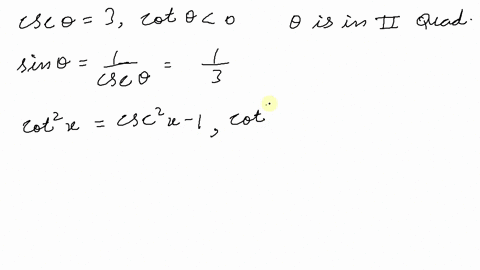 csc θ = 3, cot θ < 0 θ is in II Quad.
sin θ = 1/csc θ = 1/3
cot²x = csc²x - 1, cot